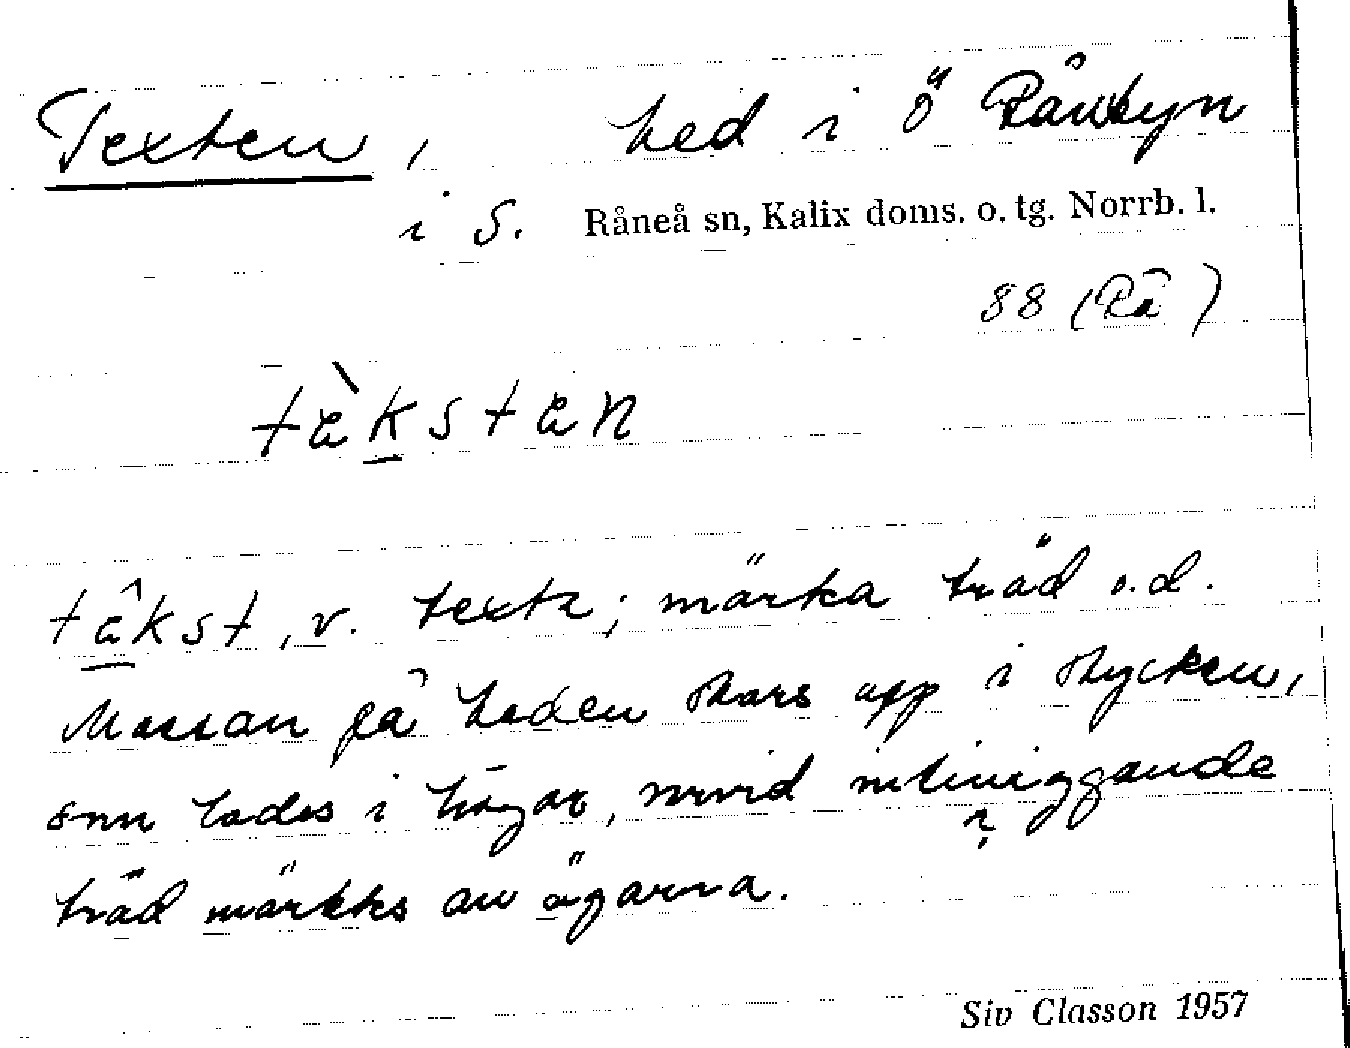 Texten, hed i Ö Råntyn
i S. Råneå sn, Kalix doms. o. tg. Norrb. l.
88 (Rå)
tèksten
têkst, v. texta; märka träd o.d.
Mossan på heden skars upp i stycken,
som lades i högar, varvid intilliggande
träd märkts av ägarna.
Siv Classon 1957